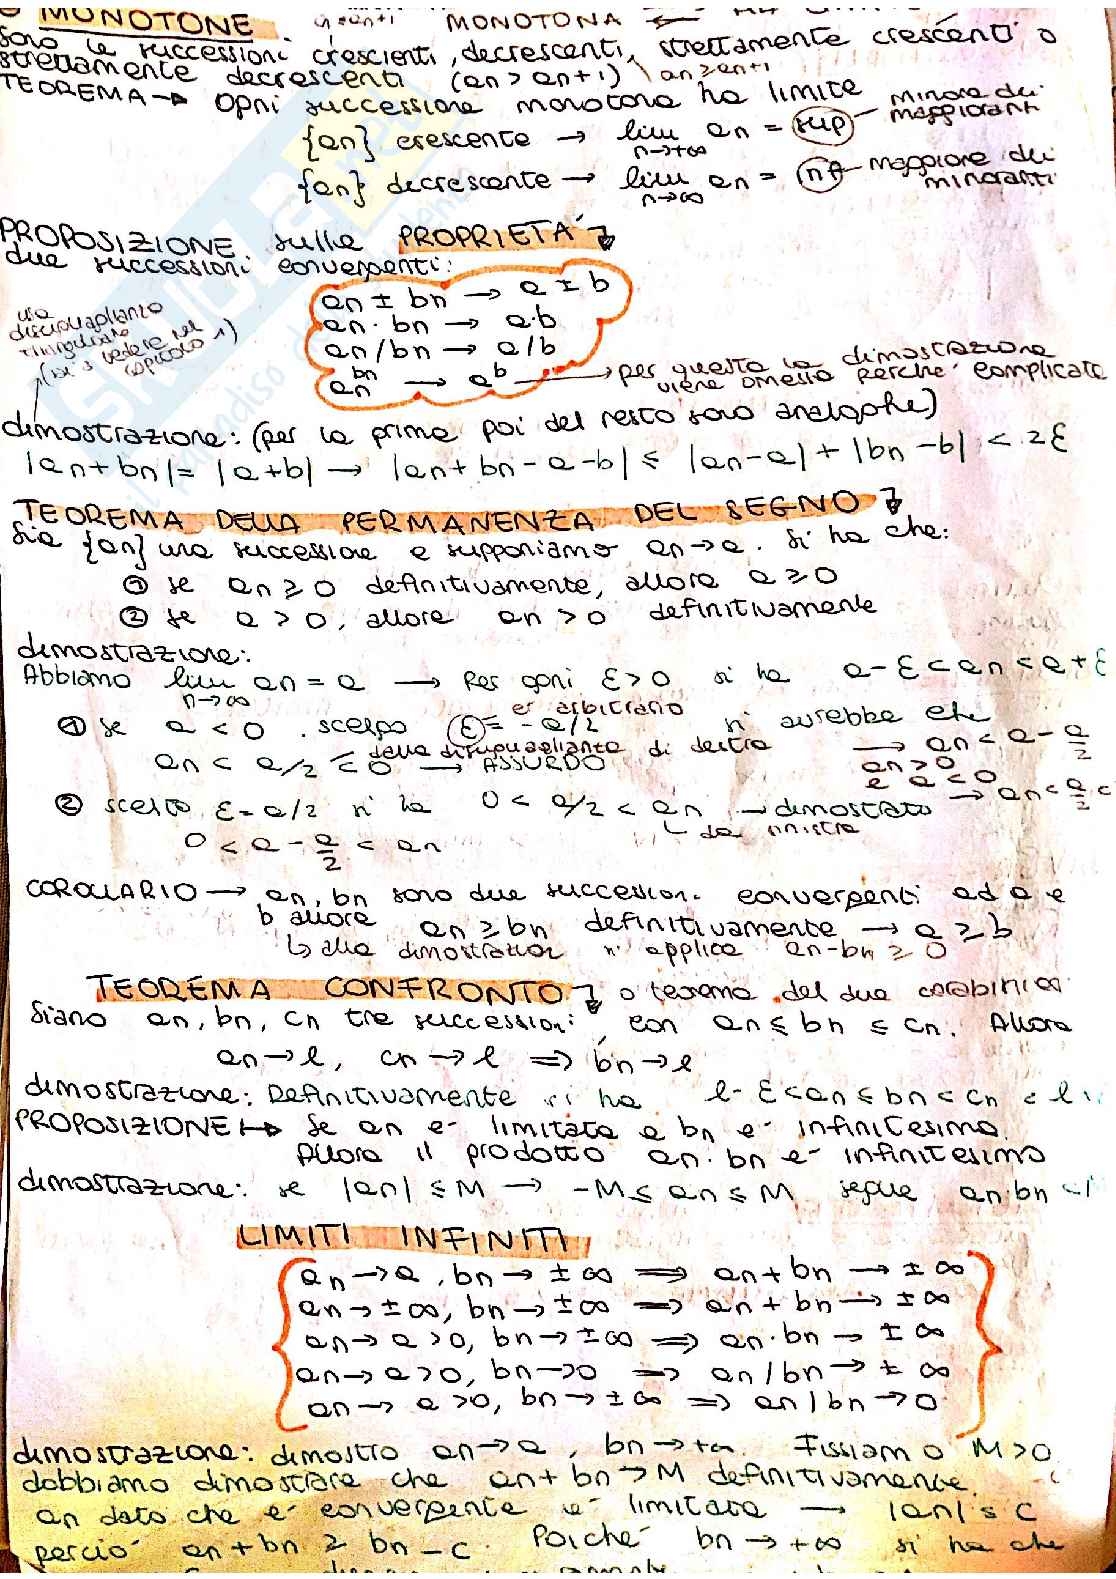 MONOTONE an≤an+1 MONOTONA
sono le successioni crescienti, decrescenti, strettamente crescenti o
strettamente decrescenti (an > an+1) an≥an+1
TEOREMA → Ogni successione monotona ha limite
{an} crescente → lim n→+∞ an = sup - minore dei maggioranti
{an} decrescente → lim n→∞ an = inf - maggiore dei minoranti
PROPOSIZIONE sulle PROPRIETA'
due successioni convergenti:
an ± bn → a ± b
an · bn → a·b
an/bn → a/b
an^bn → a^b → per questo la dimostrazione viene omessa perche' complicata
usa
disuguaglianza
triangolare
(vedere nel
capitolo 1)
dimostrazione: (per la prima poi del resto sono analoghe)
|an + bn| = |a+b| → |an + bn - a - b| ≤ |an - a| + |bn - b| < 2ε
TEOREMA DELLA PERMANENZA DEL SEGNO
Sia {an} una successione e supponiamo an→a. Si ha che:
① se an ≥ 0 definitivamente, allora a ≥ 0
② se a > 0, allora an > 0 definitivamente
dimostrazione:
Abbiamo lim n→∞ an = a → Per ogni ε > 0 si ha a - ε < an < a + ε
① se a < 0. scelgo ε = - a/2 si avrebbe che
er arbitrario
an < a/2 < 0 → ASSURDO
della disuguaglianza di destra → an < a - a/2
an > 0
e a < 0 → an < a/2 <
② scelto ε = a/2 si ha 0 < a/2 < an → dimostrato
da sinistra
0 < a - a/2 < an
COROLLARIO → an, bn sono due successioni convergenti ad a e
b allora an ≥ bn definitivamente → a ≥ b
alla dimostrazion si applica an - bn ≥ 0
TEOREMA CONFRONTO o teorema dei due carabinieri
Siano an, bn, cn tre successioni con an ≤ bn ≤ cn. Allora
an → l, cn → l => bn → l
dimostrazione: Definitivamente si ha l - ε < an ≤ bn < cn < l
PROPOSIZIONE → Se an e' limitata e bn e' infinitesima.
Allora il prodotto an · bn e' infinitesimo
dimostrazione: se |an| ≤ M → -M ≤ an ≤ M segue an·bn <
LIMITI INFINITI
an → a, bn → ± ∞ => an + bn → ± ∞
an → ± ∞, bn → ± ∞ => an + bn → ± ∞
an → a > 0, bn → ± ∞ => an · bn → ± ∞
an → a > 0, bn → 0 => an / bn → ± ∞
an → a > 0, bn → ± ∞ => an / bn → 0
dimostrazione: dimostro an → a, bn → +∞. Fissiamo M > 0
dobbiamo dimostrare che an + bn > M definitivamente.
an dato che e' convergente e' limitata → |an| ≤ C
percio' an + bn ≥ bn - C. Poiche' bn → +∞ si ha che